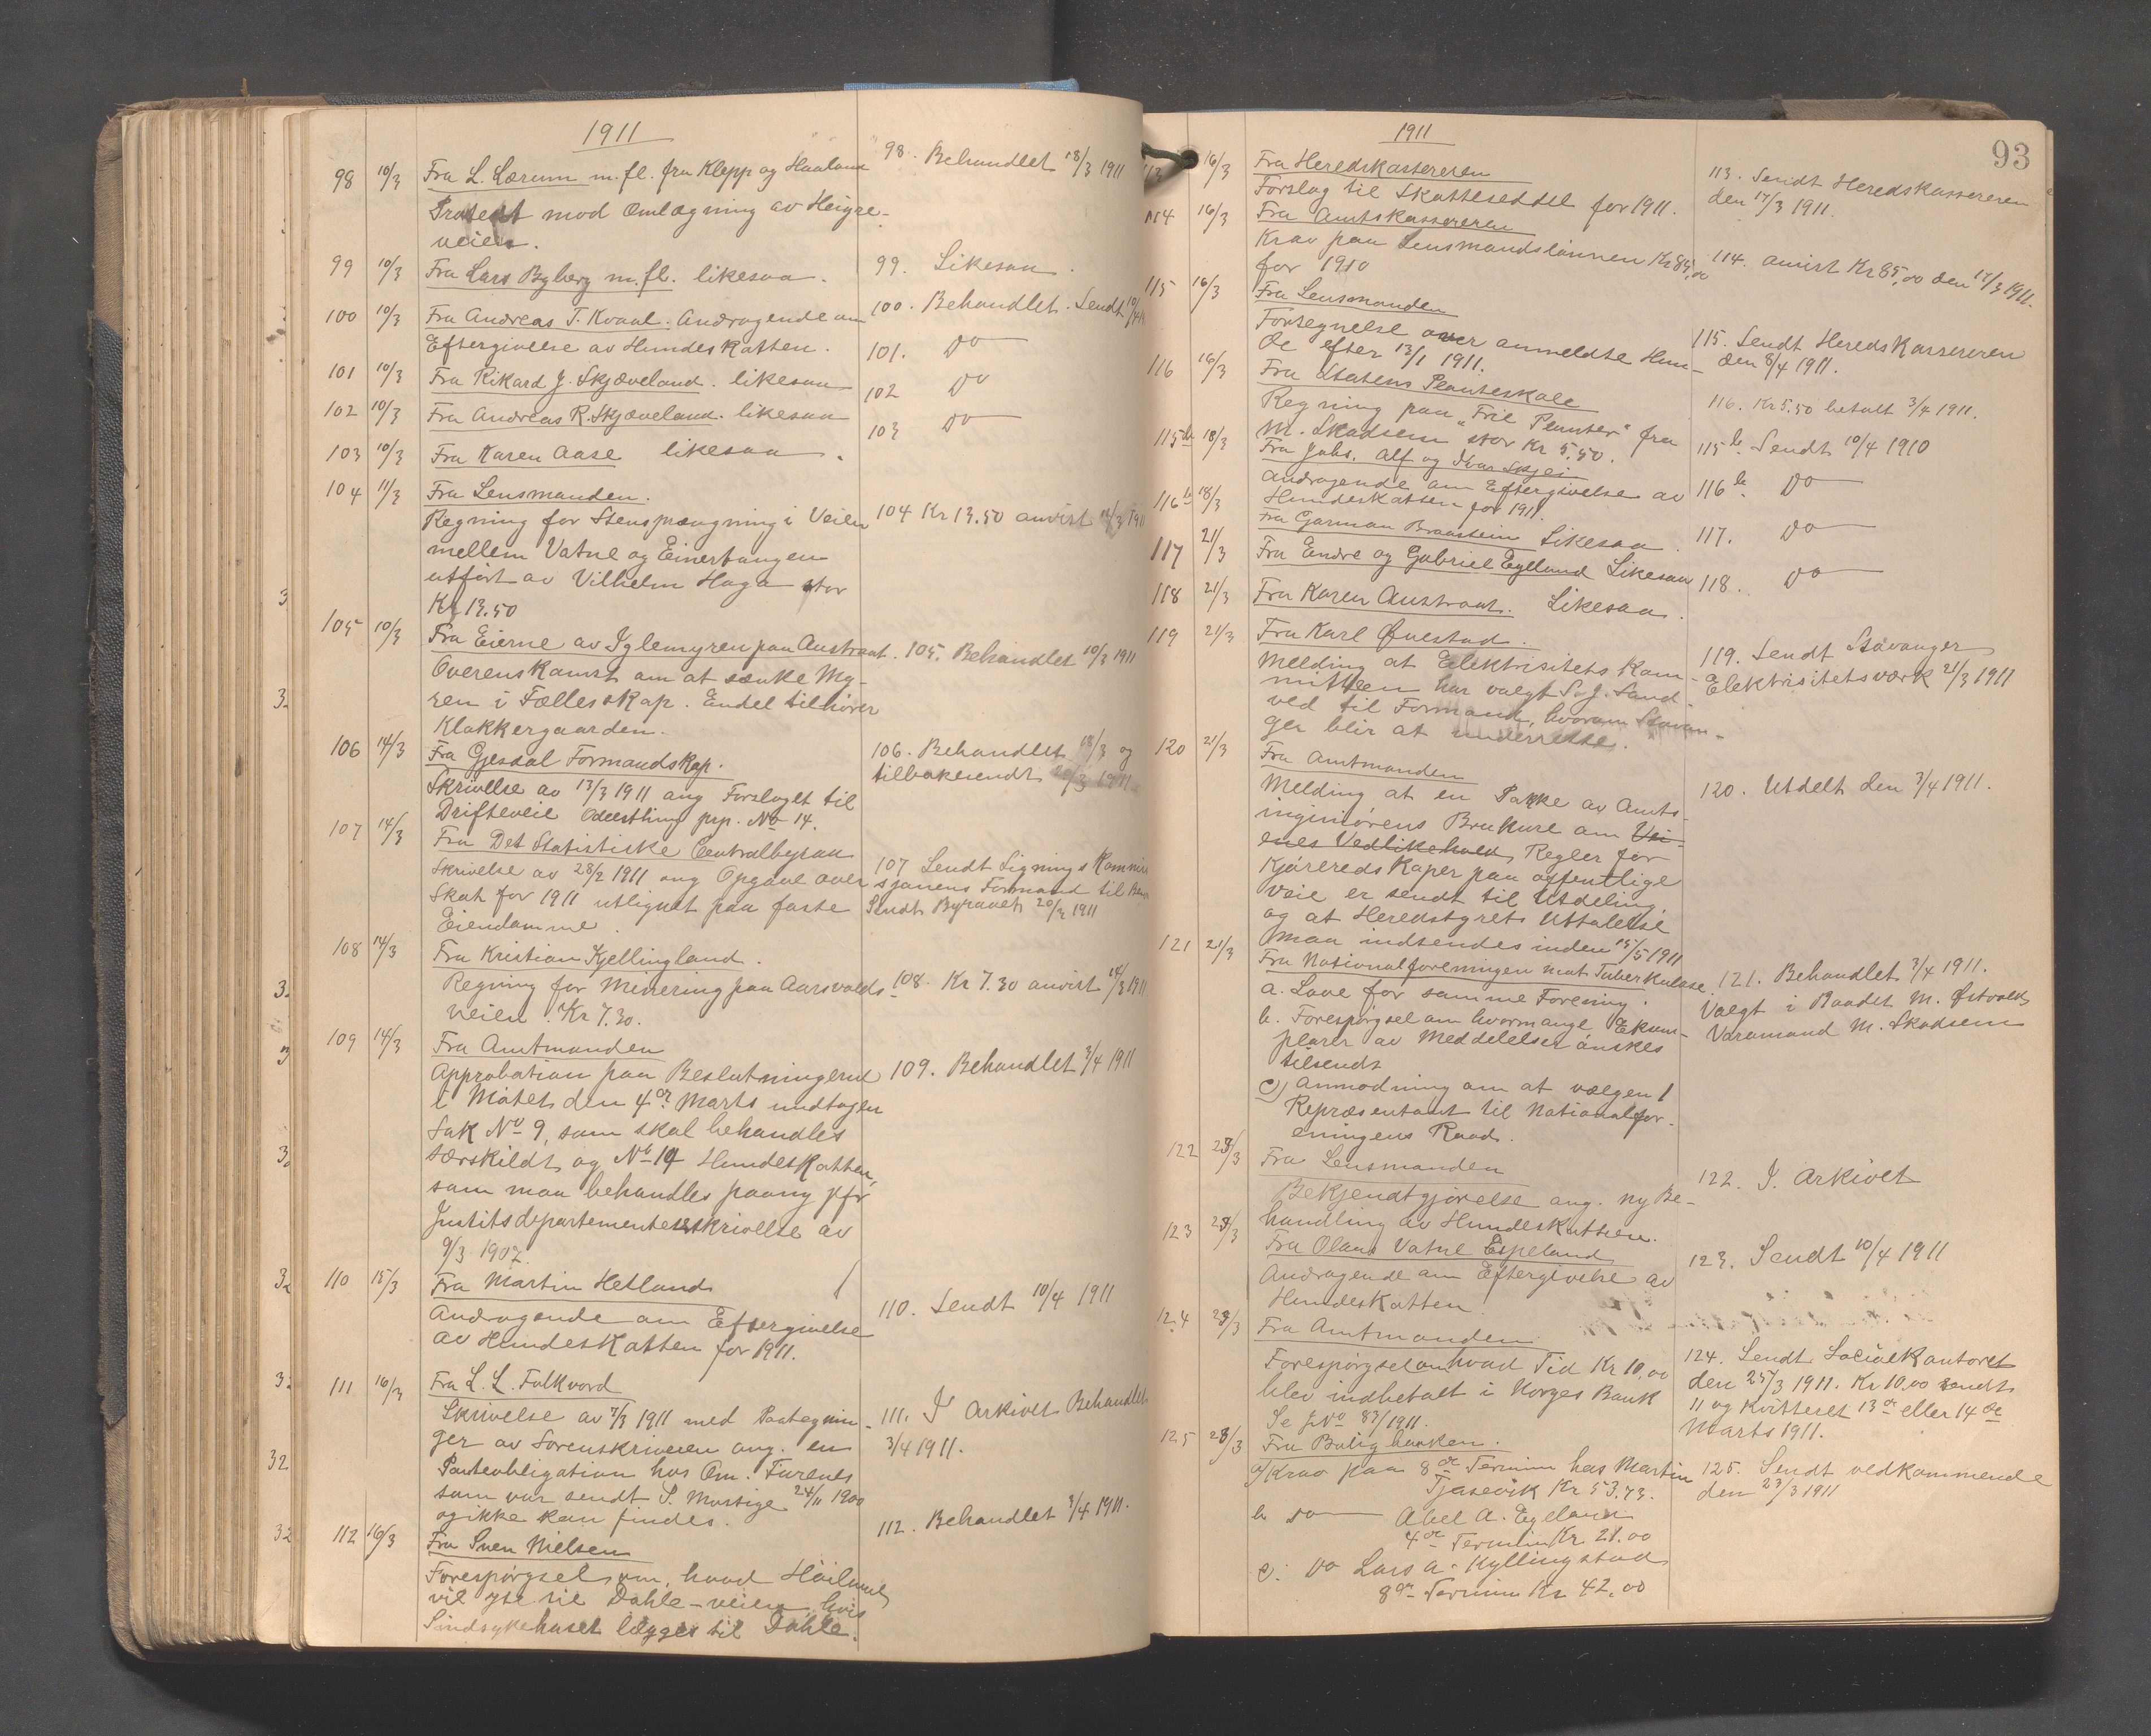 1911
98 10/3 Fra L. Lærum m. fl. fra Klepp og Haaland 98. Behandlet 18/3 1911
Protest mod Omlægning av Heigre-
veien.
99 10/3 Fra Lars Byberg m. fl. likesaa. 99. Likesaa.
100 10/3 Fra Andreas T. Kvaal. Andragende om 100. Behandlet. Sendt 10/4
Eftergivelse av Hundeskatten. 101. Do
101 10/3 Fra Rikard J. Skjæveland. likesaa 102 Do
102 10/3 Fra Andreas R. Skjæveland. likesaa 103 Do
103 10/3 Fra Karen Aase likesaa.
104 11/3 Fra Lensmanden.
Regning for Stensprængning i Veien 104 Kr 13.50 anvist
mellem Vatne og Einertangen
utført av Vilhelm Haga stor
Kr 13.50
105 10/3 Fra Eierne av Iglemyren paa Austraat. 105. Behandlet 10/3 1911
Overenskomst om at sænke My-
ren i Fællesskap. Endel tilhører
Klakkergaarden.
106 14/3 Fra Gjesdal Formandskap. 106. Behandlet 18/3 og
Skrivelse av 13/3 1911 ang Forslaget til tilbakesendt 1911
Drifteveie Odelsthing prp. No 14.
107 14/3 Fra Det Statistiske Centralbyraa
Skrivelse av 28/2 1911 ang Opgave over 107 Sendt Lignings Kommi
Skat for 1911 utlignet paa faste sjonens Formand til
Eiendomme. Sendt Byraaet 20/3 1911
108 14/3 Fra Kristian Kjellingland.
Regning for Minering paa Aarsvolds- 108. Kr 7.30 anvist 14/3 1911
veien. Kr 7.30.
109 14/3 Fra Amtmanden
Approbation paa Beslutningerne 109. Behandlet 3/4 1911
i Møtet den 4de Marts undtagen
Sak No 9, som skal behandles
særskildt og No 14 Hundeskatten,
som maa behandles paany jfr
Justitsdepartementets skrivelse av
9/3 1907.
110 15/3 Fra Martin Hetland
Andragende om Eftergivelse 110. Sendt 10/4 1911
av Hundeskatten for 1911.
111 16/3 Fra L. L. Folkvord
Skrivelse av 7/3 1911 med Paategnin- 111. I Arkivet Behandlet
ger av Sorenskriveren ang. en 3/4 1911.
Panteobligation hos Om. Furenes
som var sendt P. Mossige 24/11 1900
og ikke kan findes.
112 16/3 Fra Sven Nielsen 112. Behandlet 3/4 1911.
Forespørgsel om, hvad Høiland
vil yte til Dahle-veien hvis
Sindsykehuset lægges til Dahle.
93
1911
113 16/3 Fra Heredskassereren 113. Sendt Heredskassereren
Forslag til Skatteseddel for 1911. den 17/3 1911.
114 16/3 Fra Amtskassereren
Krav paa Lensmandslønnen Kr 85,00 114. anvist Kr 85,00 den 17/3 1911.
for 1910
115 16/3 Fra Lensmanden
Fortegnelse over anmeldte Hun- 115. Sendt Heredskassereren
de efter 13/1 1911. den 8/4 1911.
116 16/3 Fra Statens Planteskole
Regning paa „Frie Planter" fra 116. Kr 5.50 betalt 3/4 1911.
M. Skadsem stor Kr 5.50.
115b 18/3 Fra Johs. Alf og Ivar Skjei 115b. Sendt 10/4 1910
Andragende om Eftergivelse av 116b. Do
Hundeskatten for 1911
116b 18/3 Fra Garman Braastein Likesaa. 117. Do
117 21/3 Fra Endre og Gabriel Egeland Likesaa 118. Do
118 21/3 Fra Karen Austraat. Likesaa.
119 21/3 Fra Karl Øvestad.
Melding at Elektrisitets Kom- 119. Sendt Stavanger
mitteen har valgt S. J. Sand- Elektrisitetsværk 21/3 1911
ved til Formand, hvorom Stavan-
ger blir at underrette.
120 21/3 Fra Amtmanden
Melding at en Pakke av Amts- 120. Utdelt den 3/4 1911.
ingeniørens Brukure om Vei-
enes Vedlikehold, Regler for
Kjøreredskaper paa offentlige
Veie er sendt til Utdeling,
og at Heredstyrets Uttalelse
maa indsendes inden 15/5 1911
121 21/3 Fra Nationalforeningen mot Tuberkulose 121. Behandlet 3/4 1911.
a. Love for samme Forening. Valgt i Raadet M. Østvold
b. Forespørgsel om hvormange Eksem- Varamand M. Skadsem
plarer av Meddelelser ønskes
tilsendt
c) Anmodning om at vælgen 1
Repræsentant til Nationalfor-
eningens Raad.
122 23/3 Fra Lensmanden
Bekjendtgjørelse ang. ny Be- 122. I Arkivet
handling av Hundeskatten.
123 23/3 Fra Olaus Vatne Espeland
Andragende om Eftergivelse av 123. Sendt 10/4 1911
Hundeskatten.
124 23/3 Fra Amtmanden
Forespørgsel om hvad Tid Kr 10,00 124. Sendt Socialkontoret
blev indbetalt i Norges Bank den 25/3 1911. Kr 10,00 sendt
Se JNo 83/1911. 11 og Kvitteret 13de eller 14de
Marts 1911.
125 23/3 Fra Boligbanken.
a/ Krav paa 8de Termin hos Martin 125. Sendt vedkommende
Tjøsevik Kr 53.73. den 23/3 1911
b do Abel A. Egeland
4de Termin Kr 21.00
c. Do Lars A. Kyllingstad
8de Termin Kr 42.00